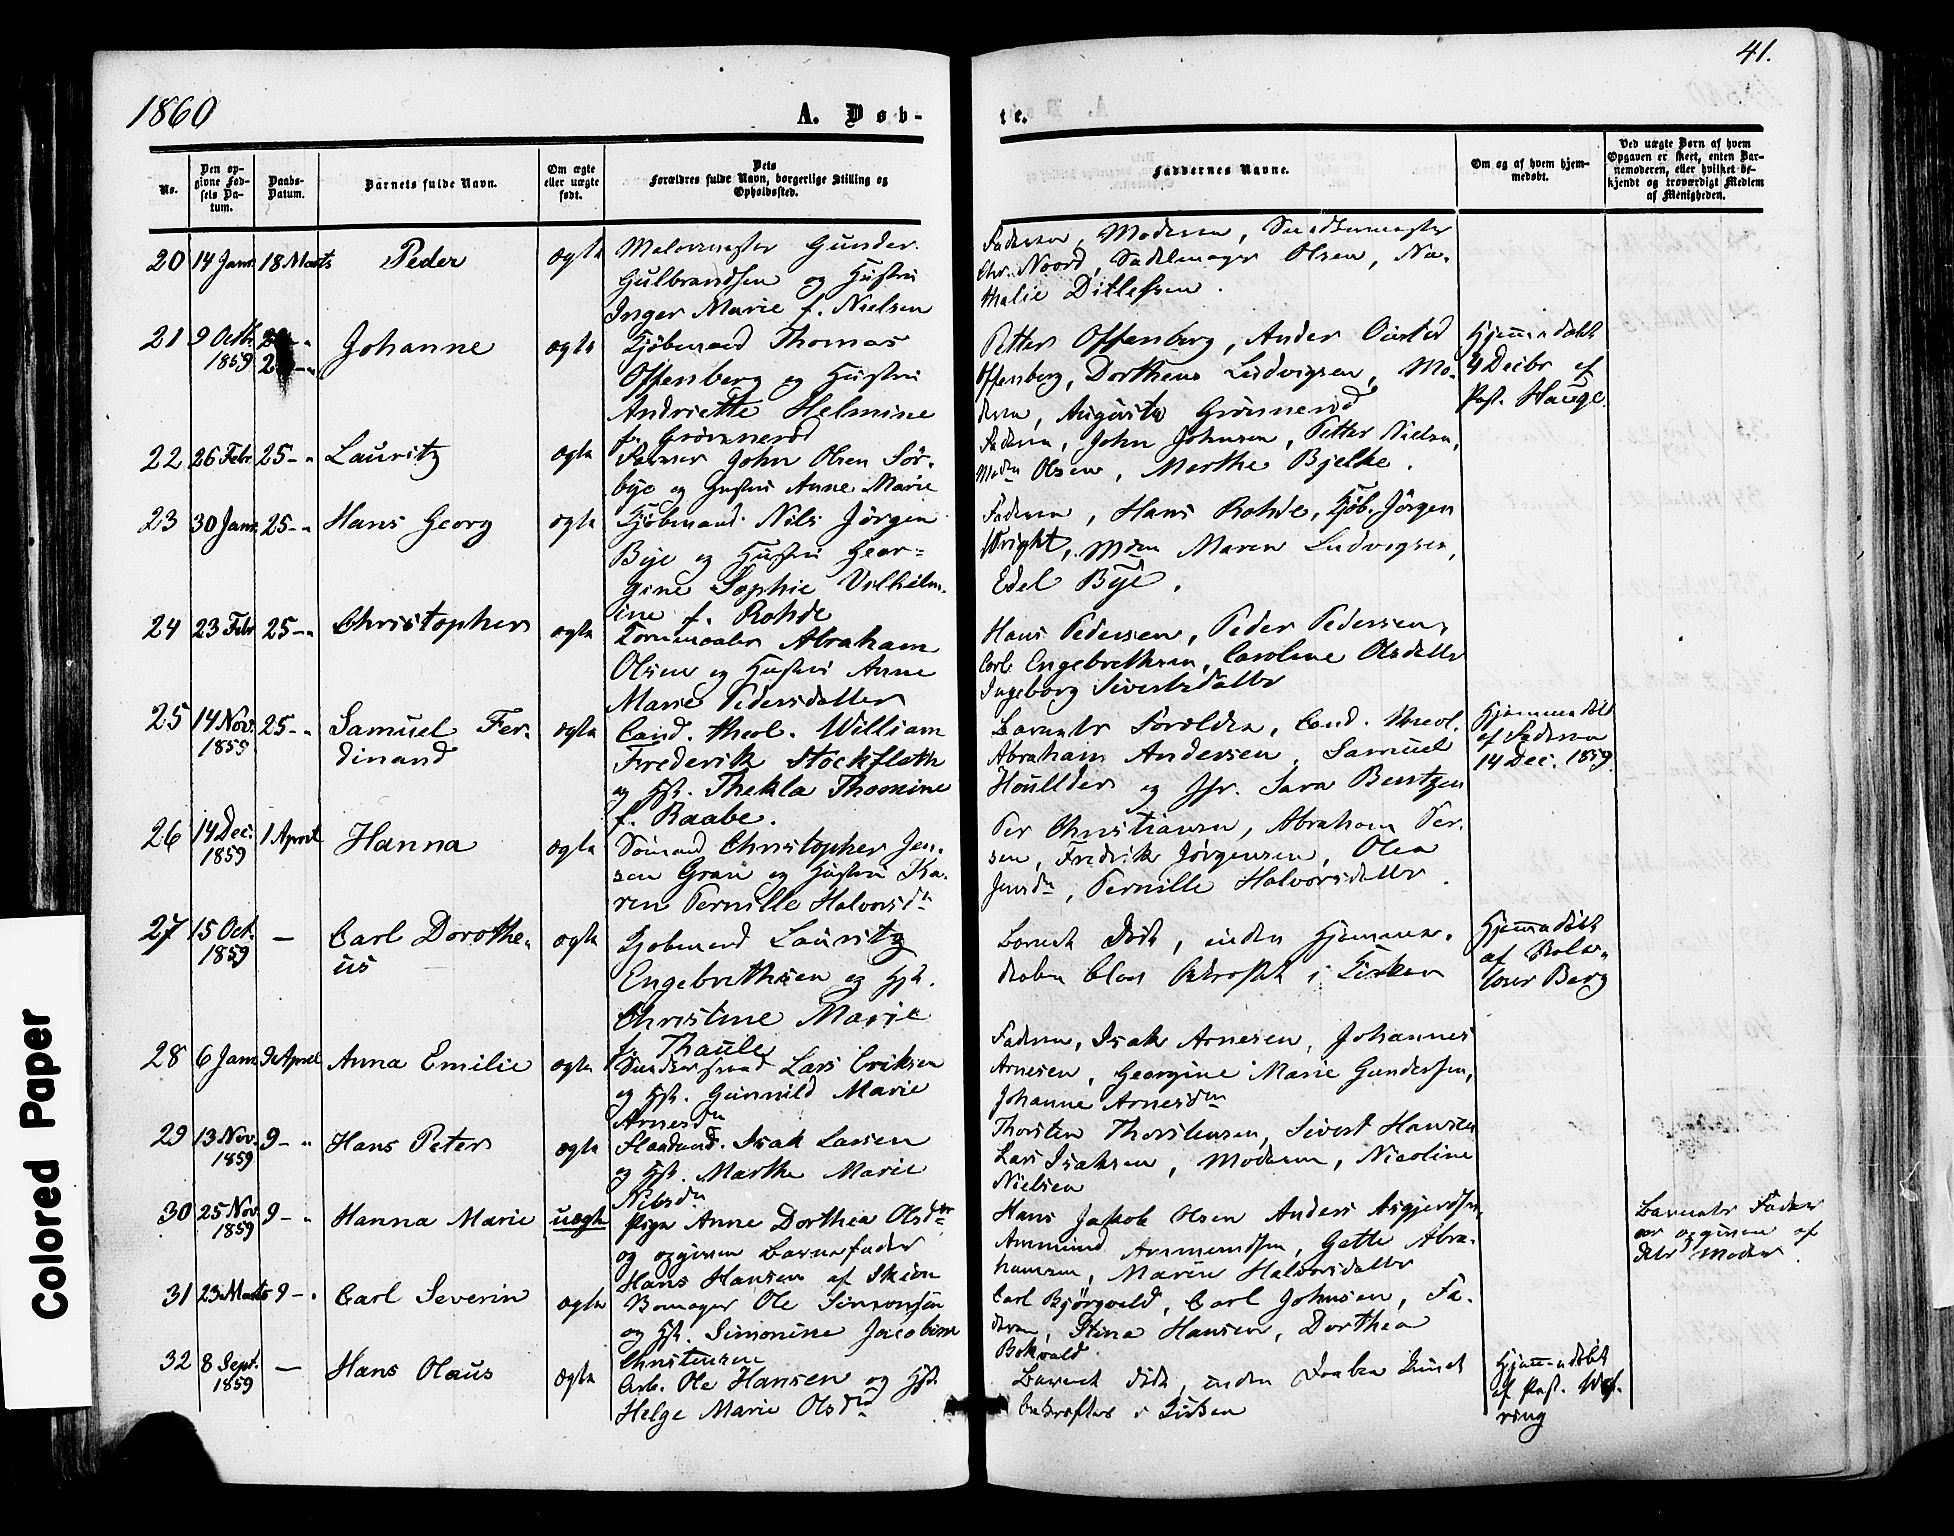 41.
1860
A. Døb-
te.
No.
Den op-
givne Fød-
sels Da-
tum.
Daabs-
Datum.
Barnets fulde Navn.
Om ægte
eller uægte
født.
Dets
Forældres fulde Navn, borgerlige Stilling og
Opholdssted.
Faddernes Navne.
Om og af hvem hjem-
medøbt.
Ved uægte Børn af hvem
Opgaven er skeet, enten Bar-
nemoderen, eller hvilket be-
kjendt og troværdigt Medlem
af Menigheden.
20 14 Janr 18 Marts Peder ægte
Gunder
Gulbrandsen og Hustru
Inger Marie f. Nielsen
Faderen, Moderen,
Chr. Noord, Sadelmager Olsen, Na-
thalie Ditlefsen.
21 9 Octbr 1859 Johanne ægte
Kjøbmand Thomas
Offenberg og Hustru
Andriette Helmine
f. Grønnerød
Petter Offenberg, Ander
Offenberg, Dorthea Ludvigsen, Mo-
deren, Augusta Grønnerød
Hjemmedøbt
4 Decbr af
Past. Hauge.
22 26 Febr 25 - " Lauritz ægte
John Olsen Sør-
bye og Hustru Anne Marie
Faderen, John Johnsen, Petter Nielsen,
Olsen, Marthe Bjelke.
23 30 Janr 25 - " Hans Georg ægte
Kjøbmand Nils Jørgen
Bye og Hustru Geor-
gine Sophie Vilhelm-
ine f. Rohde
Faderen, Hans Rohde, Kjøb. Jørgen
Wright, Maren Ludvigsen,
Edel Bye.
24 23 Febr 25 - " Christopher ægte
Abraham
Olsen og Hustru Anne
Marie Pedersdatter
Hans Pedersen, Peder Pedersen,
Carl Engebrethsen, Caroline Olsdatter
Ingeborg Sivertsdatter
25 14 Nov. 1859 25 - " Samuel Fer-
dinand ægte
Cand. theol. William
Frederik Stockfleth
og Hst. Thekla Thomine
f. Raabe.
Barnets Forældre, Cand. theol.
Abraham Andersen, Samuel
Houllder og Sara Bentzen
Hjemmedøbt
af Faderen
14 Dec. 1859.
26 14 Dec. 1859 1 April Hanna ægte
Sømand Christopher Jen-
sen Gran og Hustru Ka-
ren Pernille Halvorsd.
Per Christiansen, Abraham Per-
sen, Fredrik Jørgensen, Olea
Jensd., Pernille Halvorsdatter.
27 15 Oct. 1859 — Carl Dorothe-
us ægte
Kjøbmand Lauritz
Engebrethsen og Hst.
Christine Marie
f. Thaule
Barnet døde, inden Hjemme-
daaben blev bekræftet i Kirken
Hjemmedøbt
af
Berg
28 6 Janr 9 April Anna Emilie ægte
Lars Eriksen
og Hst. Gunnild Marie
Arnesd.
Faderen, Isak Arnesen, Johannes
Arnesen, Georgine Marie Gundersen,
Johanne Arnesd.
29 13 Nov. 1859 9 - " Hans Peter ægte
Isak Larsen
og Hst. Marthe Marie
Nilsd.
Thorsten Thorstensen, Sivert Hansen
Lars Isaksen, Moderen, Nicoline
Nielsen
30 25 Nov. 1859 9 - " Hanna Marie uægte
Pige Anne Dorthea Olsd.
og opgiven Barnefader
Hans Hansen af Skien
Hans Jakob Olsen Anders Asgjerdsen,
Ammund Ammundsen, Gette Abra-
hamsen, Maren Halvorsdatter
Barnets Fader
er opgiven af
dets Moder
31 23 Marts 9 - " Carl Severin ægte
Ole Simonsen
og Hst. Simonine Jacobine
Christensen
Carl Bjørgvald, Carl Johnsen, Fa-
deren, Stina Hansen, Dorthea
Bokvald.
32 8 Sept. 1859 — Hans Olaus ægte
Arb. Ole Hansen og Hst.
Helge Marie Olsd.
Barnet døde, inden Daaben kunde
bekræftes i Kirken
Hjemmedøbt
af Past. Wef-
ring
Colored Paper